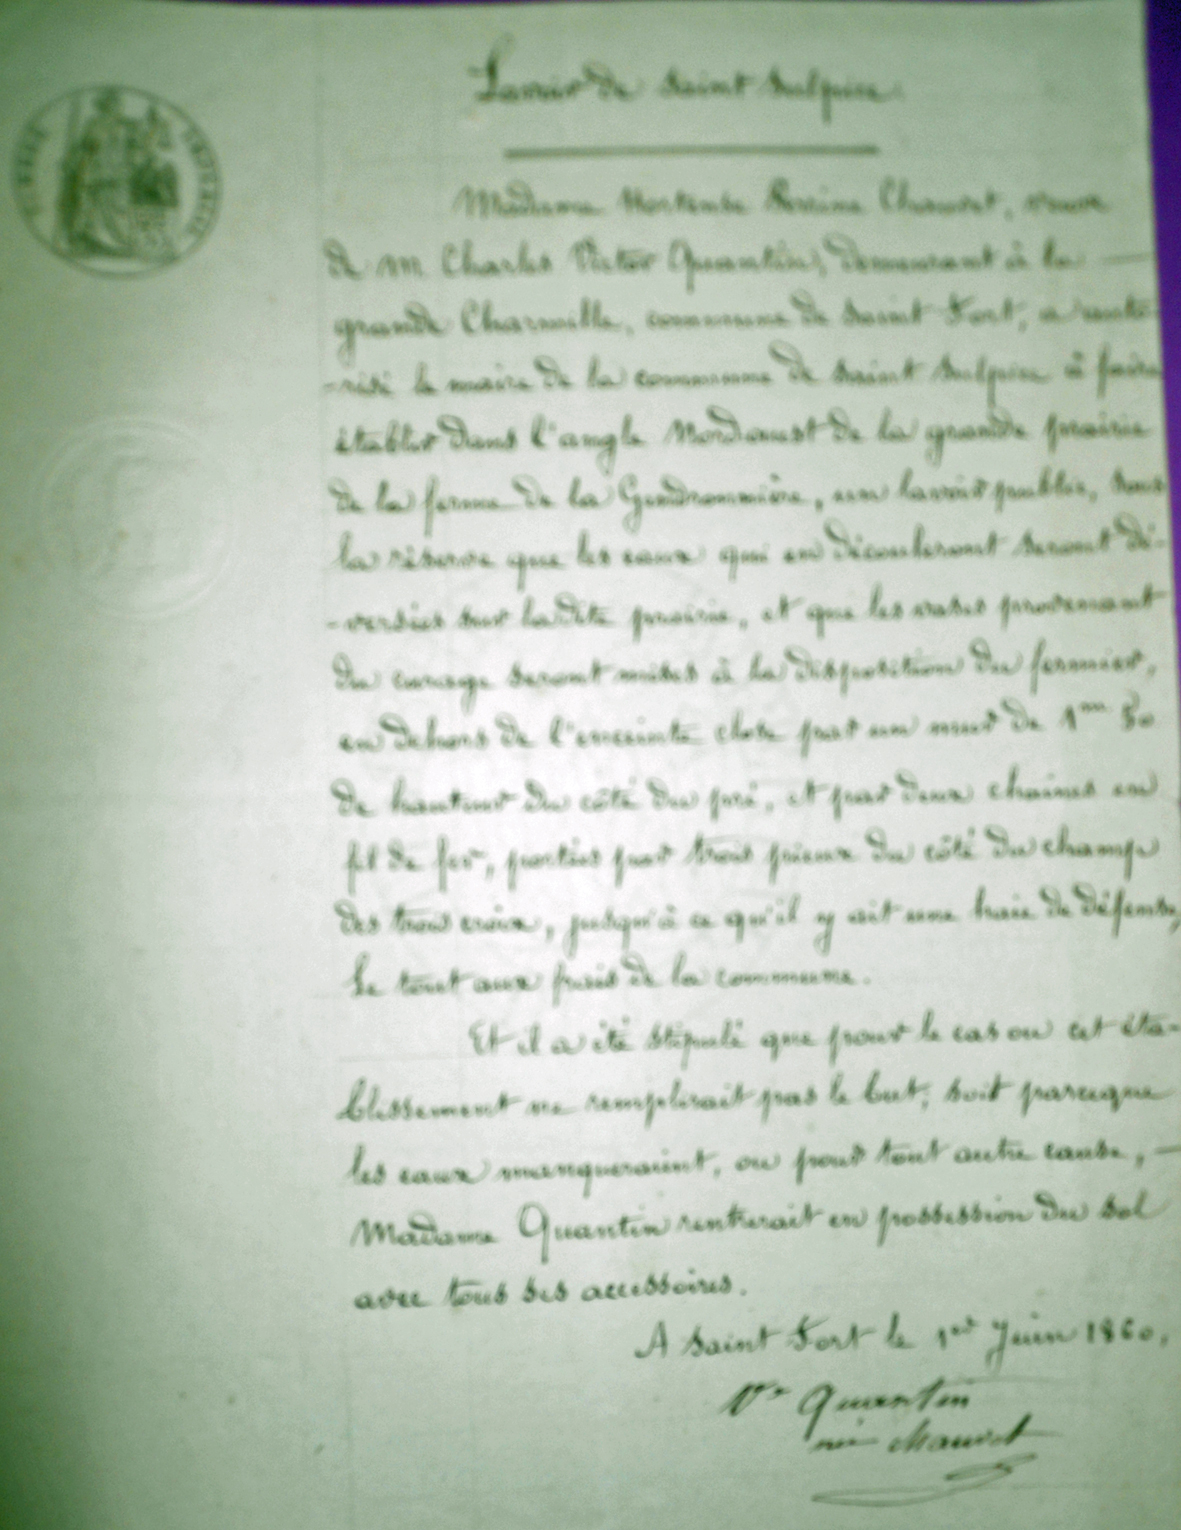 Lavoir de Saint Sulpice
Madame Hortense Perrine Chauvet, veuve
de M Charles Victor Quantin, demeurant à la
grande Charmille, commune de Saint Fort, a auto-
-risé le maire de la commune de Saint Sulpice à faire
établir dans l'angle Nordouest de la grande prairie
de la ferme de la Gendronnière, un lavoir public, sous
la réserve que les eaux qui en découleront seront dé-
-versées sur ladite prairie, et que les vases provenant
du curage seront mises à la disposition du fermier,
en dehors de l'enceinte close par un mur de 1m
de hauteur du côté du pré, et par deux chaines en
fil de fer, portées par trois pieux du côté du champ
des trois croix, jusqu'à ce qu'il y ait une haie de défense,
Le tout aux frais de la commune.
Et il a été stipulé que pour le cas ou cet éta-
blissement ne remplirait pas le but, soit parceque
les eaux manqueraient, ou pour tout autre cause,
Madame Quantin rentrerait en possession du sol
avec tous ses accessoires.
A Saint Fort le 1er Juin 1860,
Ve Quantin
née Chauvet